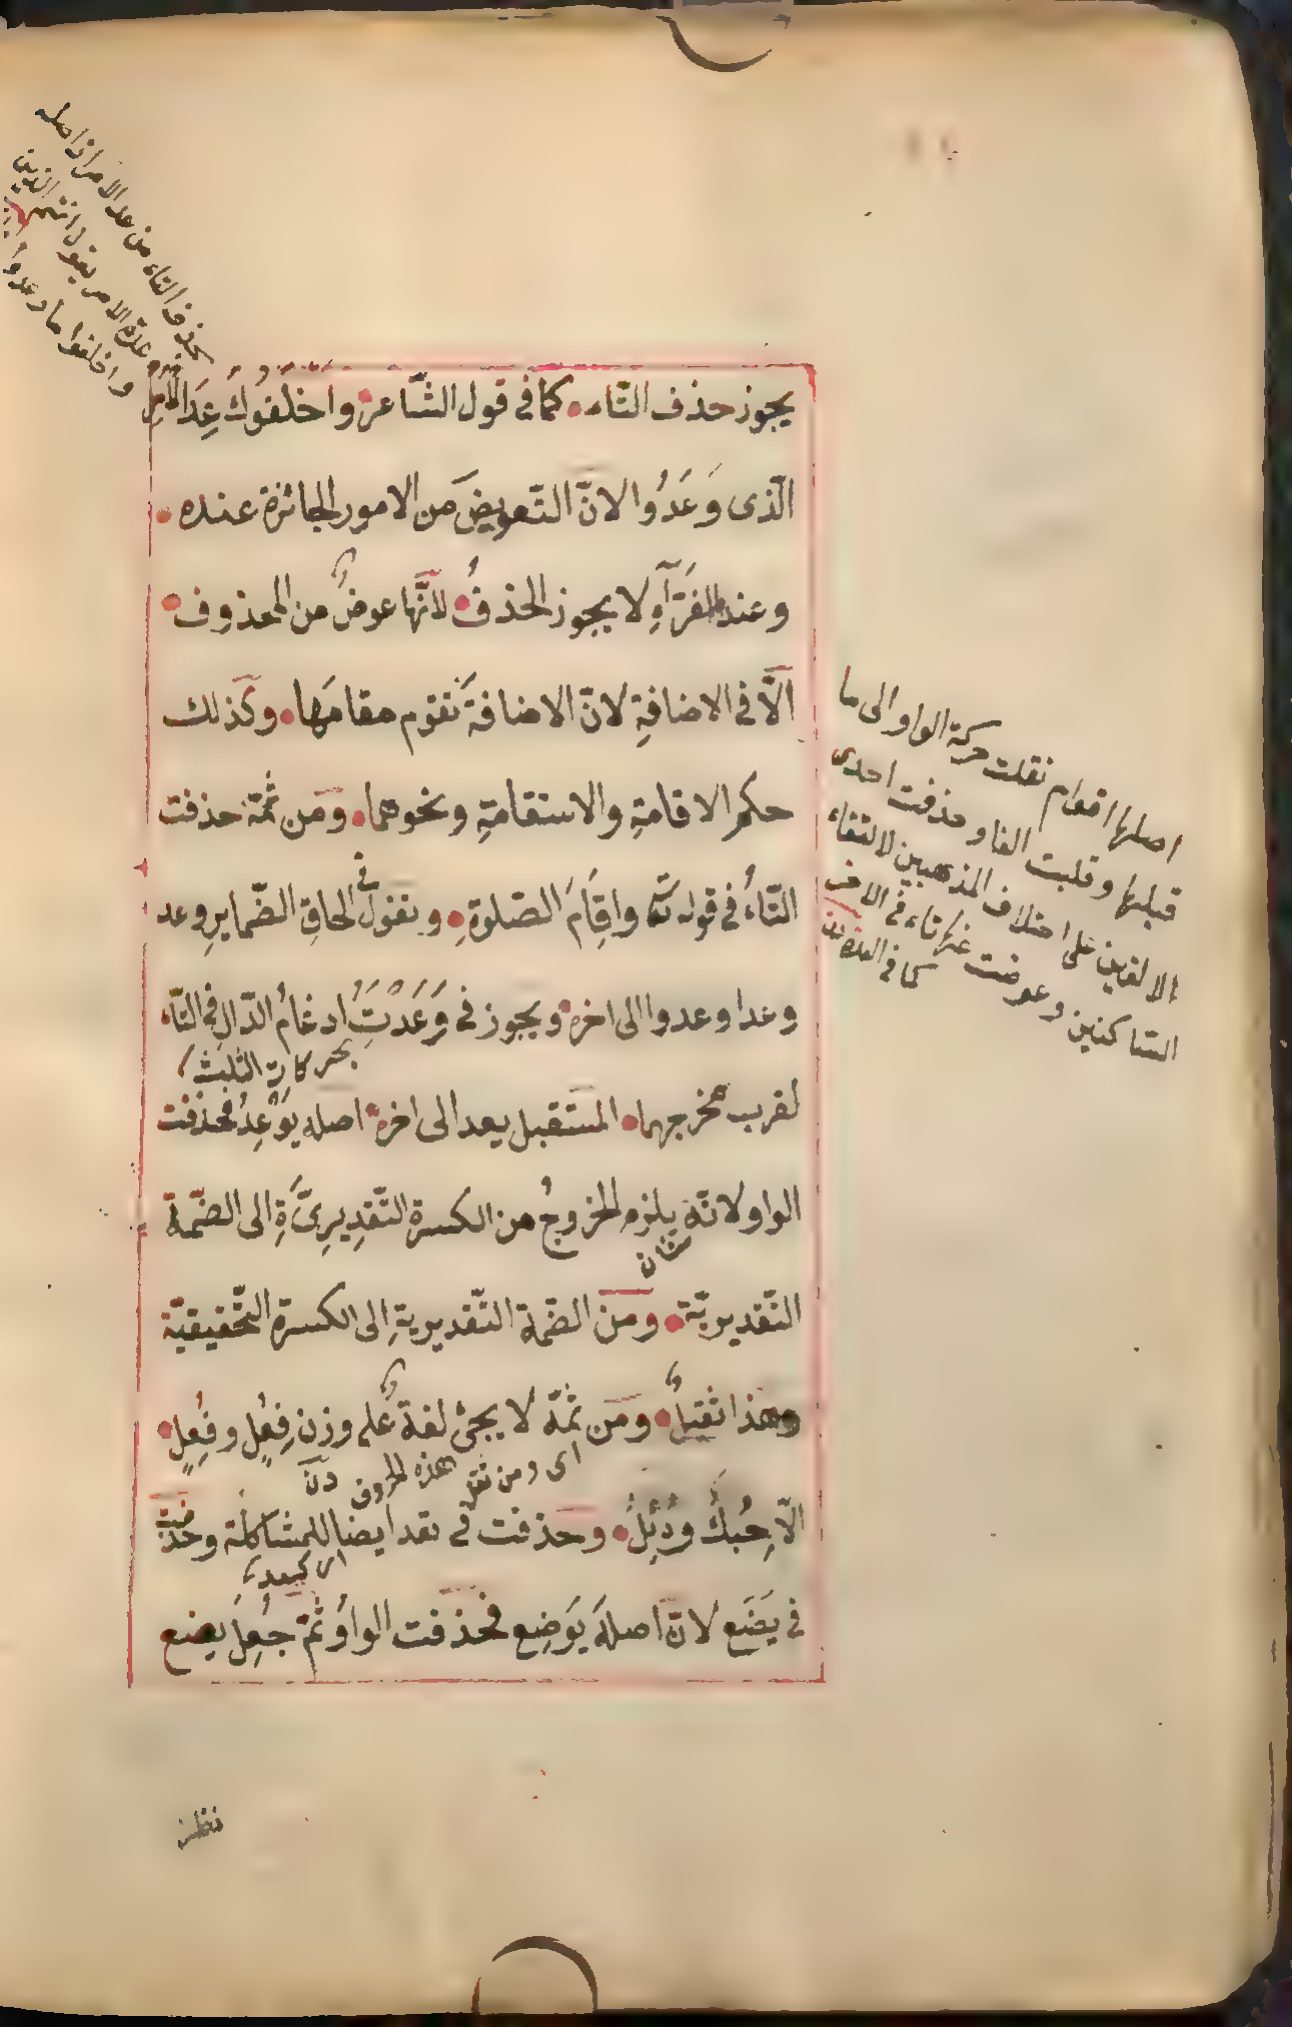 يجوز حذف التّاء كما في قول الشّاعر واَخْلَفُوكَ عِدَ الاَمْرِ
الّذى وَعَدُوا لانّ التّعويضَ من الامور الجائزة عنده
وعند الفَرّآءِ لا يجوز الحذفُ لاَنَّها عوضٌ من المحذوف
الاَّ في الاضافةِ لانّ الاضافةَ تقوم مقامَها وكذلك
حكم الاقامةِ والاستقامةِ ونحوهما ومن ثمّة حذفت
التّاءُ في قوله تَعَ واِقَامَ الصّلوةِ وتقول في الحاقِ الضّمايرِ وعد
وعدا وعدوا الى اخره ويجوز في وَعَدْتَُِ ادغامُ الدّالِ في التّاء
بحركات الثلث
لقرب مخرجهما المستقبل يعد الى اخره اصله يَوْعِدُ فحذفت
الواو لانّه يلزم الخروجُ من الكسرةِ التّقدِيرِيَّةِ الى الضّمة
التّقديريّة ومن الضّمة التّقديريةِ الى الكسرة التّحقيقيّة
وهذا ثقيلٌ ومن ثمّة لا يجئ لغة على وزن فِعُلٍ وفُعِلٍ
اى ومن ثقل هذه الحروف
الاّ حِبُكٌ ودُئِلٌ وحذفت في تعد ايضا للمشاكلة وحذفت
في يَضَع لانّ اصلَه يَوضِع فحذفت الواوُ ثمّ جُعِلَ يضع
بحذف التاء من عد الامر اذ اصله
عدة الامر يقول
واخلفوا ما وعدوا
اصلها اقوام نقلت حركة الواو الى ما
قبلها وقلبت الفا وحذفت احدى
الالفين على اختلاف المذهبين لالتقاء
الساكنين وعوضت عنها تاء في الاخر
كما في العدة